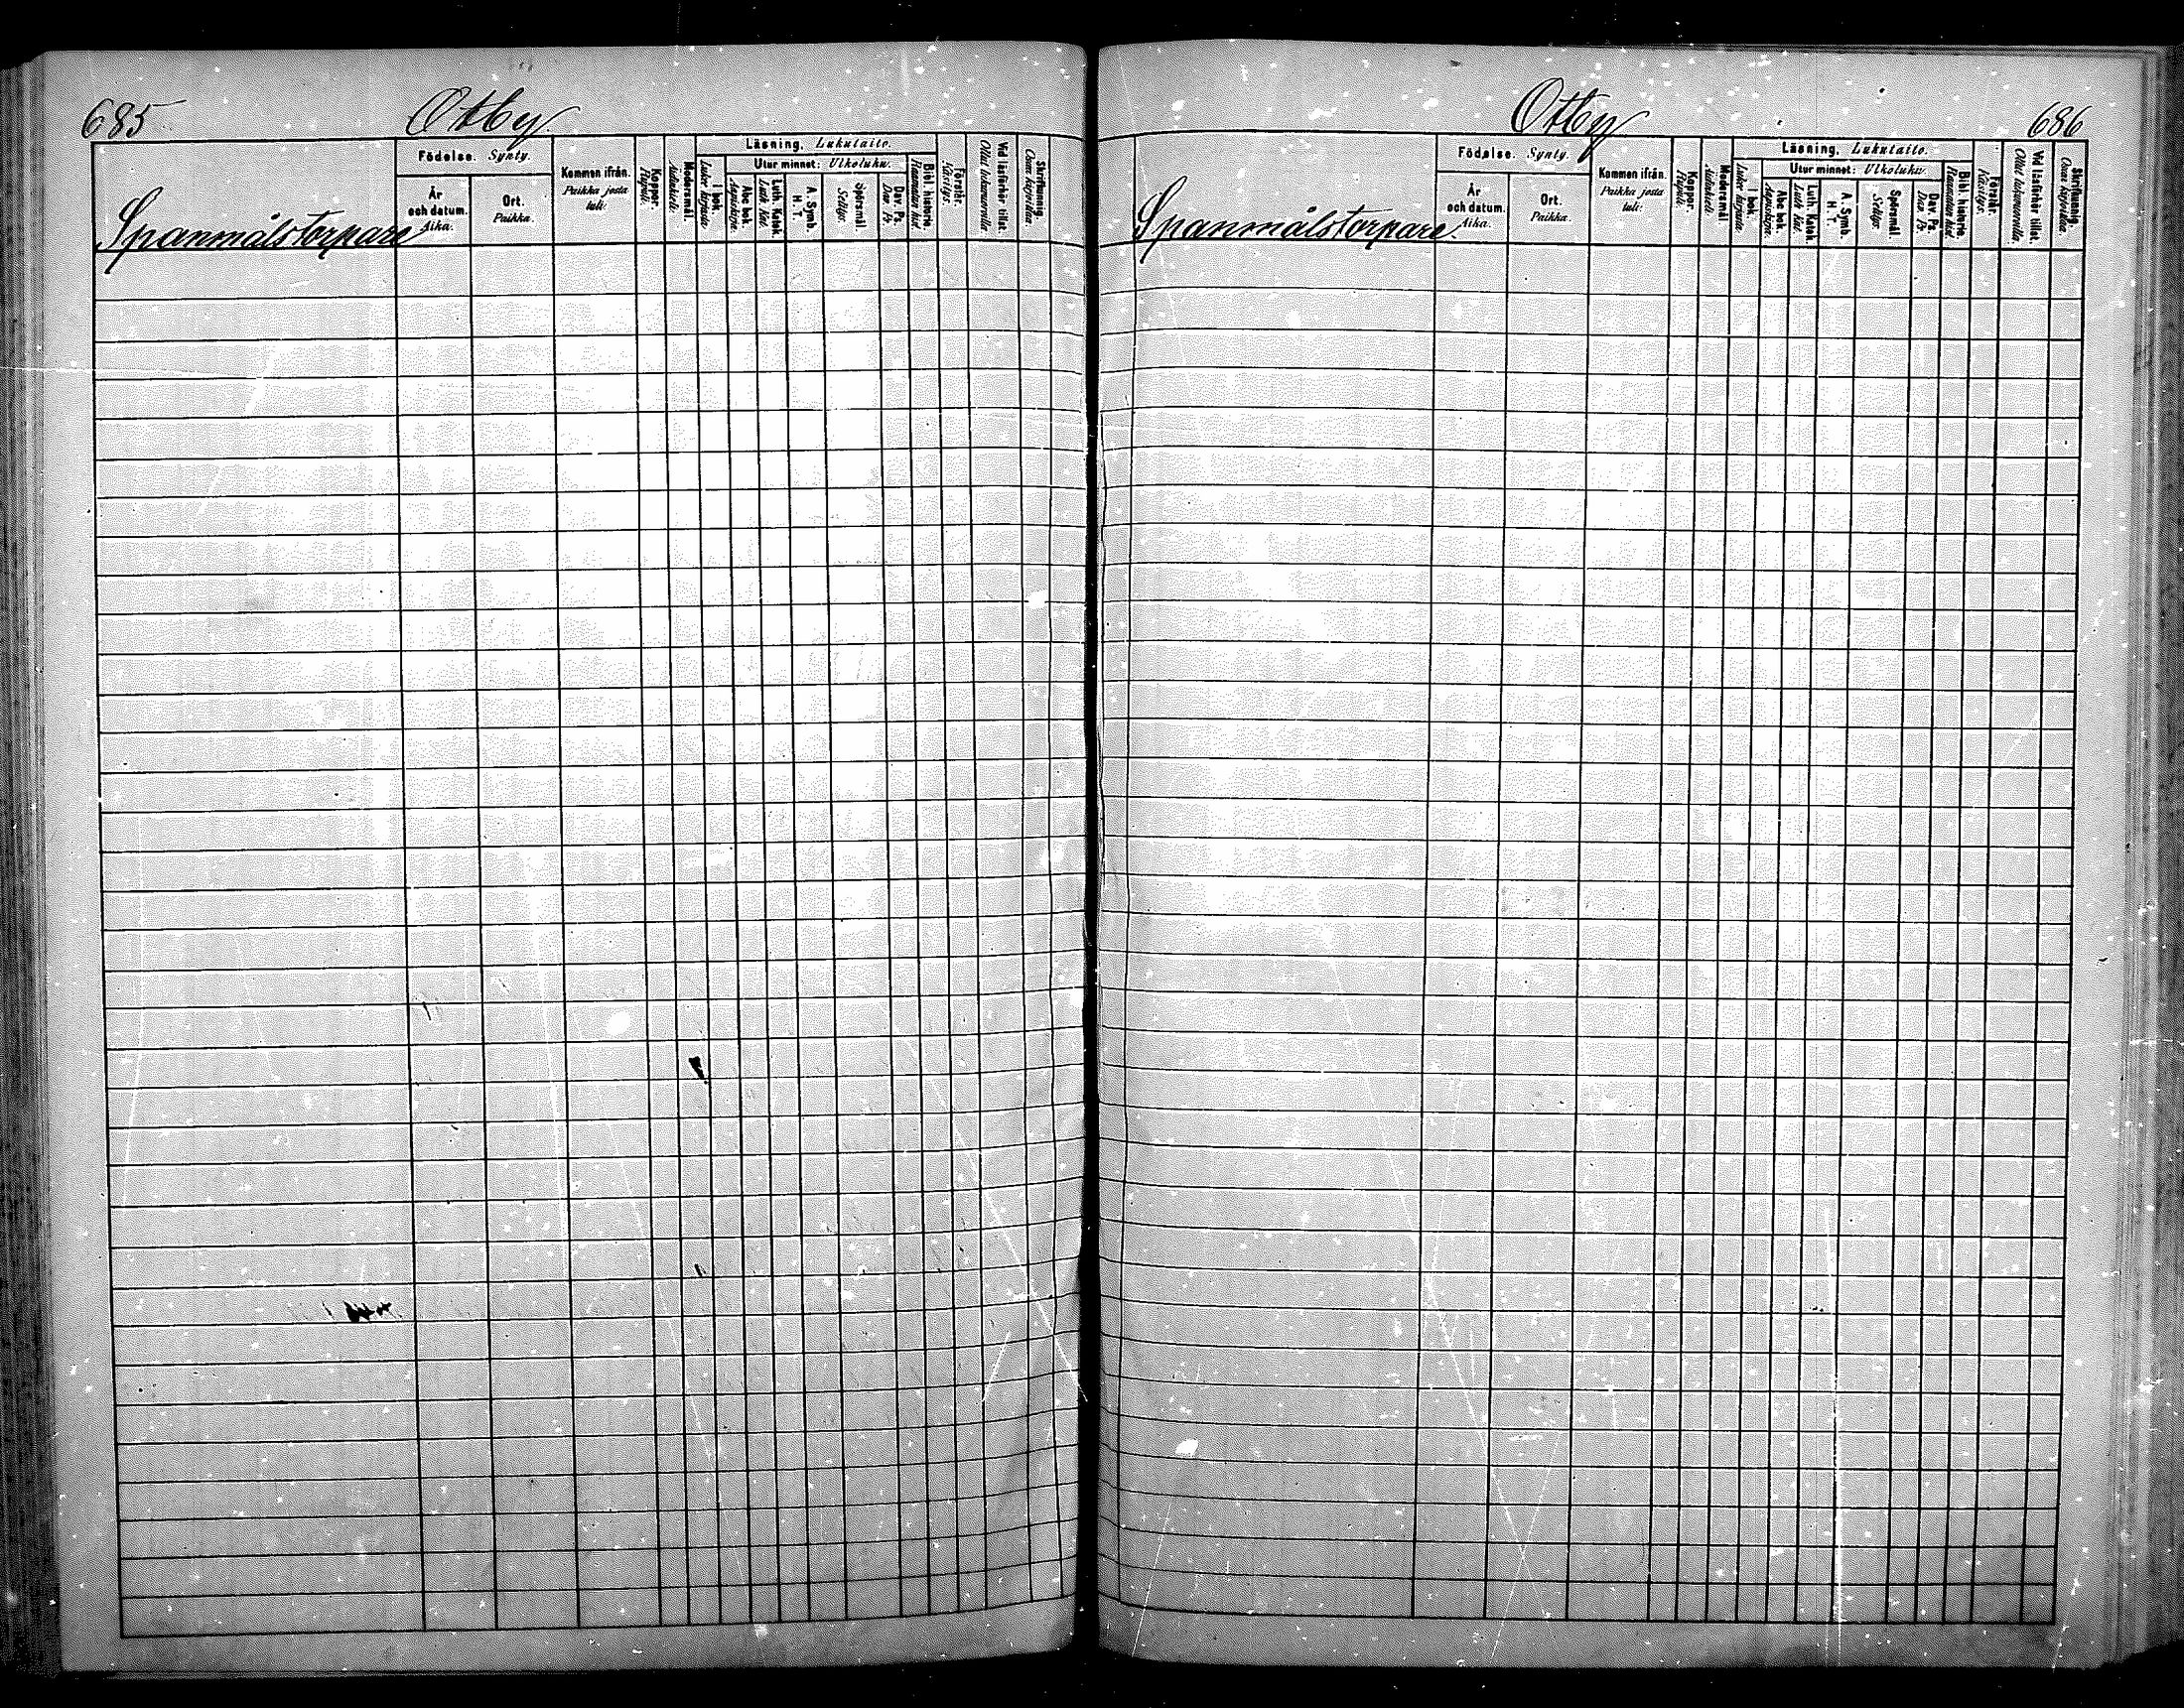 685
Otby
Födelse. Synty.
År och datum. Aika.
Ort. Paikka.
Kommen ifrån. Paikka josta tuli:
Koppor. Rupuli.
Modersmål. Äidinkieli.
Läsning, Lukutaito.
I bok. Lukee kirjasta.
Utur minnet: Ulkoluku.
Abc bok. Aapiskirja.
Luth. Katek. Luth. Kat.
A. Symb. H. T.
Spörsmål. Selitys.
Dav. Ps. Dav. Ps.
Bibl. historia. Raamatun hist.
Förstår. Käsitys.
Vid läsförhör tillst. Ollut lukuvuorolla
Skrifkunnig. Osaa kirjoittaa.
Spanmålstorpare
Otby
686
Födelse. Synty.
År och datum. Aika.
Ort. Paikka.
Kommen ifrån. Paikka josta tuli:
Koppor. Rupuli.
Modersmål. Äidinkieli.
Läsning, Lukutaito.
I bok. Lukee kirjasta.
Utur minnet: Ulkoluku.
Abc bok. Aapiskirja.
Luth. Katek. Luth. Kat.
A. Symb. H. T.
Spörsmål. Selitys.
Dav. Ps. Dav. Ps.
Bibl. historia. Raamatun hist.
Förstår. Käsitys.
Vid läsförhör tillst.
Skrifkunnig. Osaa kirjoittaa.
Spanmålstorpare.